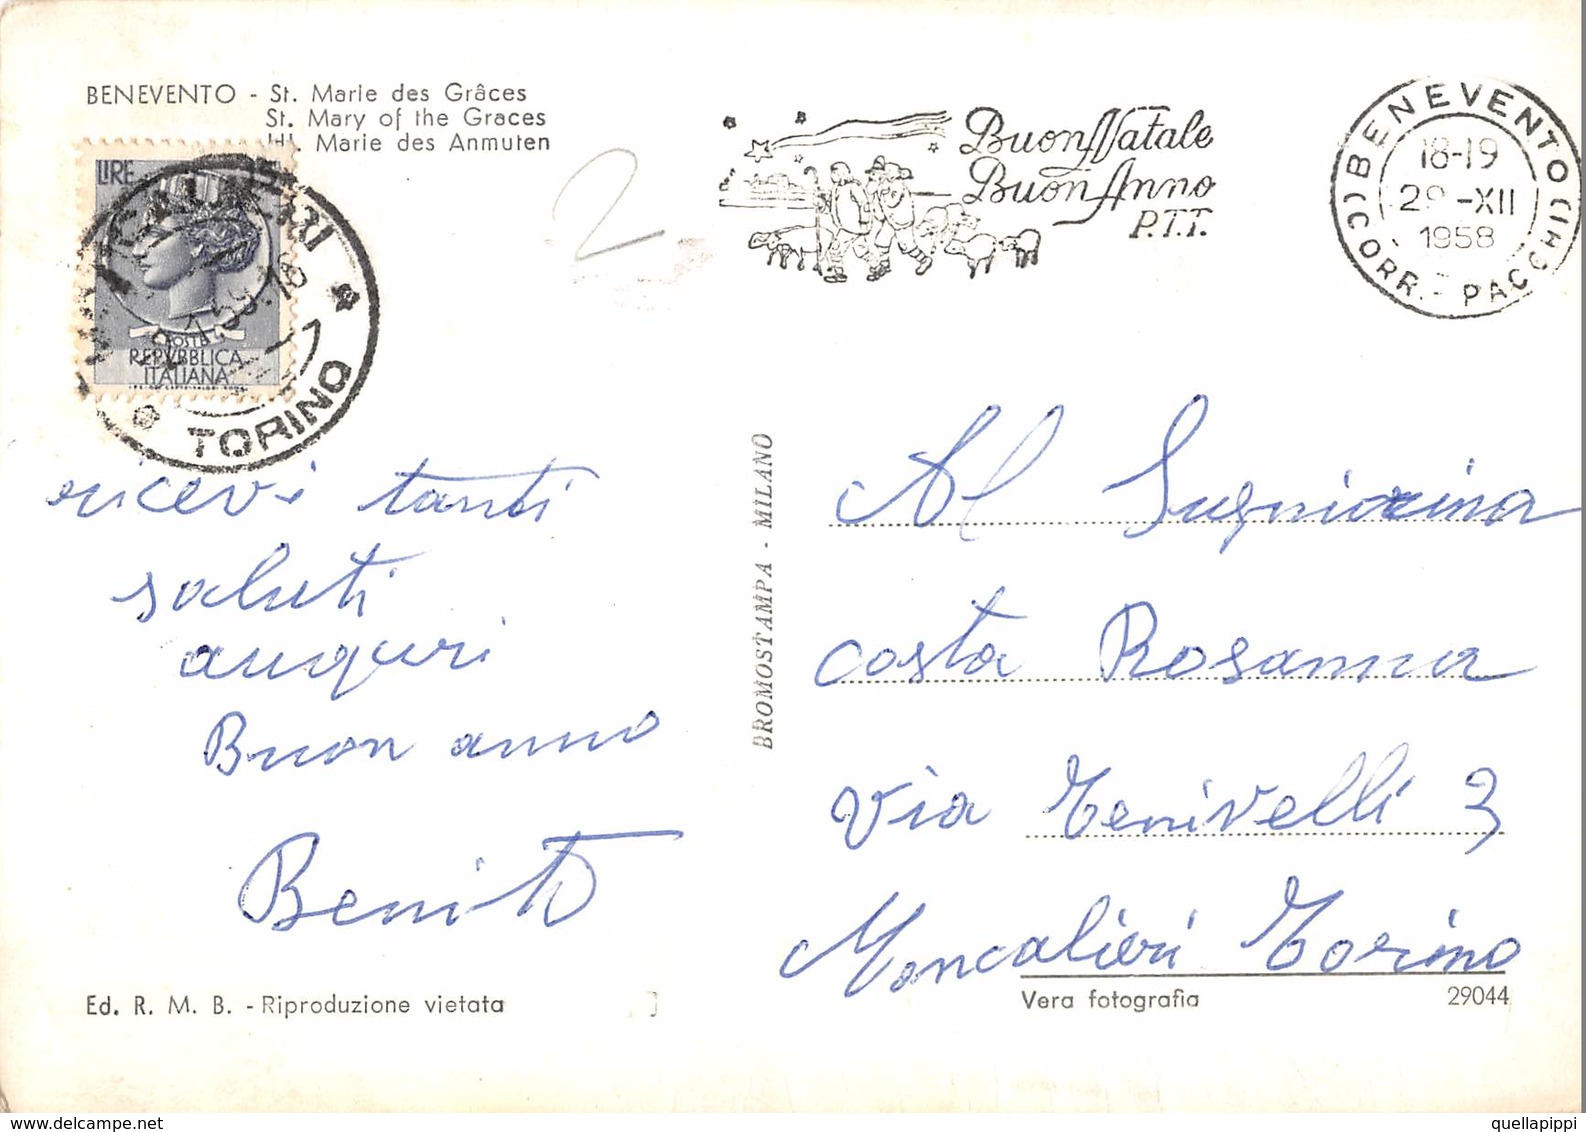 BENEVENTO - St. Marie des Grâces
St. Mary of the Graces
Hl. Marie des Anmuten
LIRE
POSTE
REPVBBLICA
ITALIANA
TORINO
2
Buon Natale
Buon Anno
P.T.T.
BENEVENTO
(CORR. - PACCHI)
18-19
-XII
1958
ricevi tanti
saluti
auguri
Buon anno
Benito
BROMOSTAMPA - MILANO
Al Sugniorina
costa Rosanna
via Tenivelli 3
Moncalieri Torino
Ed. R. M. B. - Riproduzione vietata
Vera fotografia
29044
quellapippi